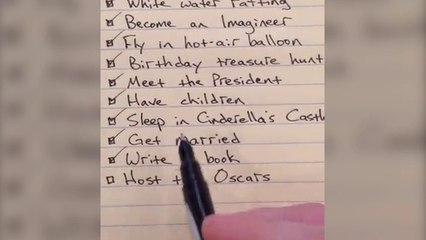 White water rafting
Become an Imagineer
Fly in hot-air balloon
Birthday treasure hunt
Meet the President
Have children
Sleep in Cinderella's Castle
Get married
Write book
Host Oscars